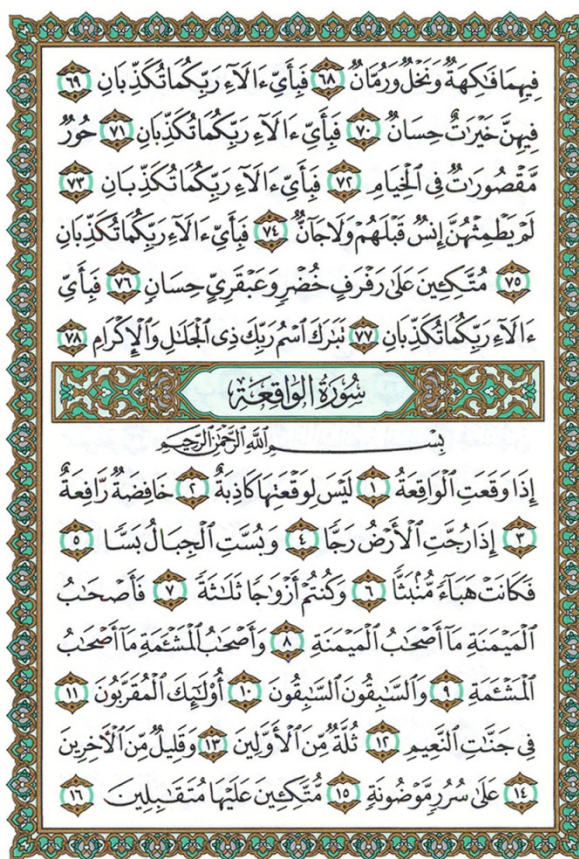 فِيهِمَا فَـٰكِهَةٌ وَنَخْلٌ وَرُمَّانٌ ٦٨ فَبِأَيِّ ءَالَآءِ رَبِّكُمَا تُكَذِّبَانِ ٦٩
فِيهِنَّ خَيْرَٰتٌ حِسَانٌ ٧٠ فَبِأَيِّ ءَالَآءِ رَبِّكُمَا تُكَذِّبَانِ ٧١ حُورٌ
مَّقْصُورَٰتٌ فِى ٱلْخِيَامِ ٧٢ فَبِأَيِّ ءَالَآءِ رَبِّكُمَا تُكَذِّبَانِ ٧٣
لَمْ يَطْمِثْهُنَّ إِنسٌ قَبْلَهُمْ وَلَا جَآنٌّ ٧٤ فَبِأَيِّ ءَالَآءِ رَبِّكُمَا تُكَذِّبَانِ
٧٥ مُتَّكِـِٔينَ عَلَىٰ رَفْرَفٍ خُضْرٍ وَعَبْقَرِىٍّ حِسَانٍ ٧٦ فَبِأَيِّ
ءَالَآءِ رَبِّكُمَا تُكَذِّبَانِ ٧٧ تَبَـٰرَكَ ٱسْمُ رَبِّكَ ذِى ٱلْجَلَـٰلِ وَٱلْإِكْرَامِ ٧٨
سُورَةُ الوَاقِعَةِ
بِسْمِ ٱللَّهِ ٱلرَّحْمَـٰنِ ٱلرَّحِيمِ
إِذَا وَقَعَتِ ٱلْوَاقِعَةُ ١ لَيْسَ لِوَقْعَتِهَا كَاذِبَةٌ ٢ خَافِضَةٌ رَّافِعَةٌ
٣ إِذَا رُجَّتِ ٱلْأَرْضُ رَجًّا ٤ وَبُسَّتِ ٱلْجِبَالُ بَسًّا ٥
فَكَانَتْ هَبَآءً مُّنۢبَثًّا ٦ وَكُنتُمْ أَزْوَٰجًا ثَلَـٰثَةً ٧ فَأَصْحَـٰبُ
ٱلْمَيْمَنَةِ مَآ أَصْحَـٰبُ ٱلْمَيْمَنَةِ ٨ وَأَصْحَـٰبُ ٱلْمَشْـَٔمَةِ مَآ أَصْحَـٰبُ
ٱلْمَشْـَٔمَةِ ٩ وَٱلسَّـٰبِقُونَ ٱلسَّـٰبِقُونَ ١٠ أُو۟لَـٰٓئِكَ ٱلْمُقَرَّبُونَ ١١
فِى جَنَّـٰتِ ٱلنَّعِيمِ ١٢ ثُلَّةٌ مِّنَ ٱلْأَوَّلِينَ ١٣ وَقَلِيلٌ مِّنَ ٱلْـَٔاخِرِينَ
١٤ عَلَىٰ سُرُرٍ مَّوْضُونَةٍ ١٥ مُّتَّكِـِٔينَ عَلَيْهَا مُتَقَـٰبِلِينَ ١٦